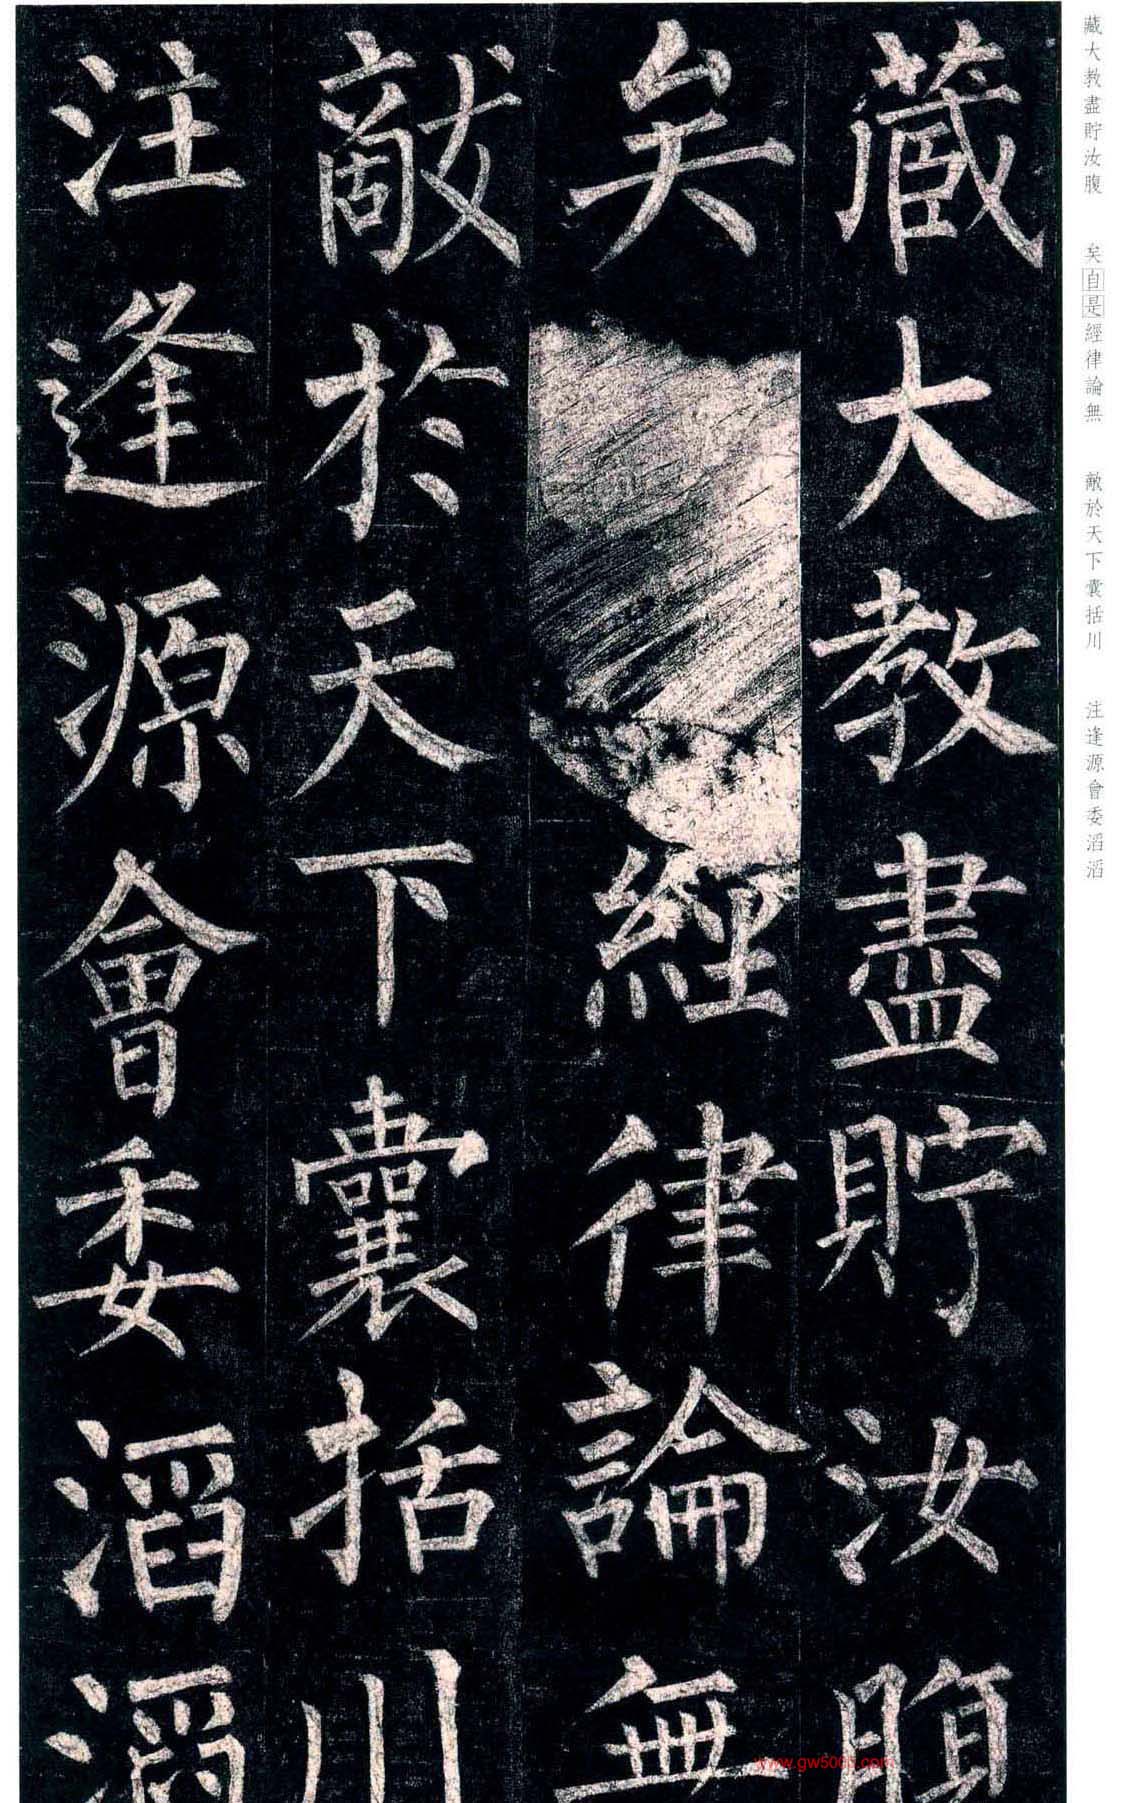 藏大教盡貯汝腹
矣經律論無
敵於天下囊括川
注逢源會委滔滔
藏大教盡貯汝腹
矣自是經律論無
敵於天下囊括川
注逢源會委滔滔
www.gw5000.com